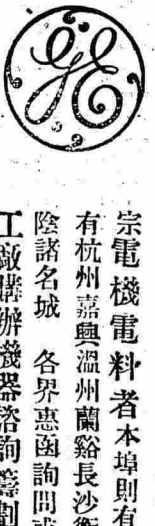 GE
宗電機電料者本埠則有
有杭州嘉興溫州蘭谿長沙
陰諸名城 各界惠函詢問
工廠購辦機器諮詢籌劃